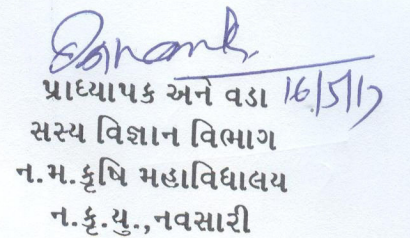 પ્રાધ્યાપક અને વડા 16/5/17
સસ્ય વિજ્ઞાન વિભાગ
ન.મ.કૃષિ મહાવિધાલય
ન.કૃ.યુ.,નવસારી